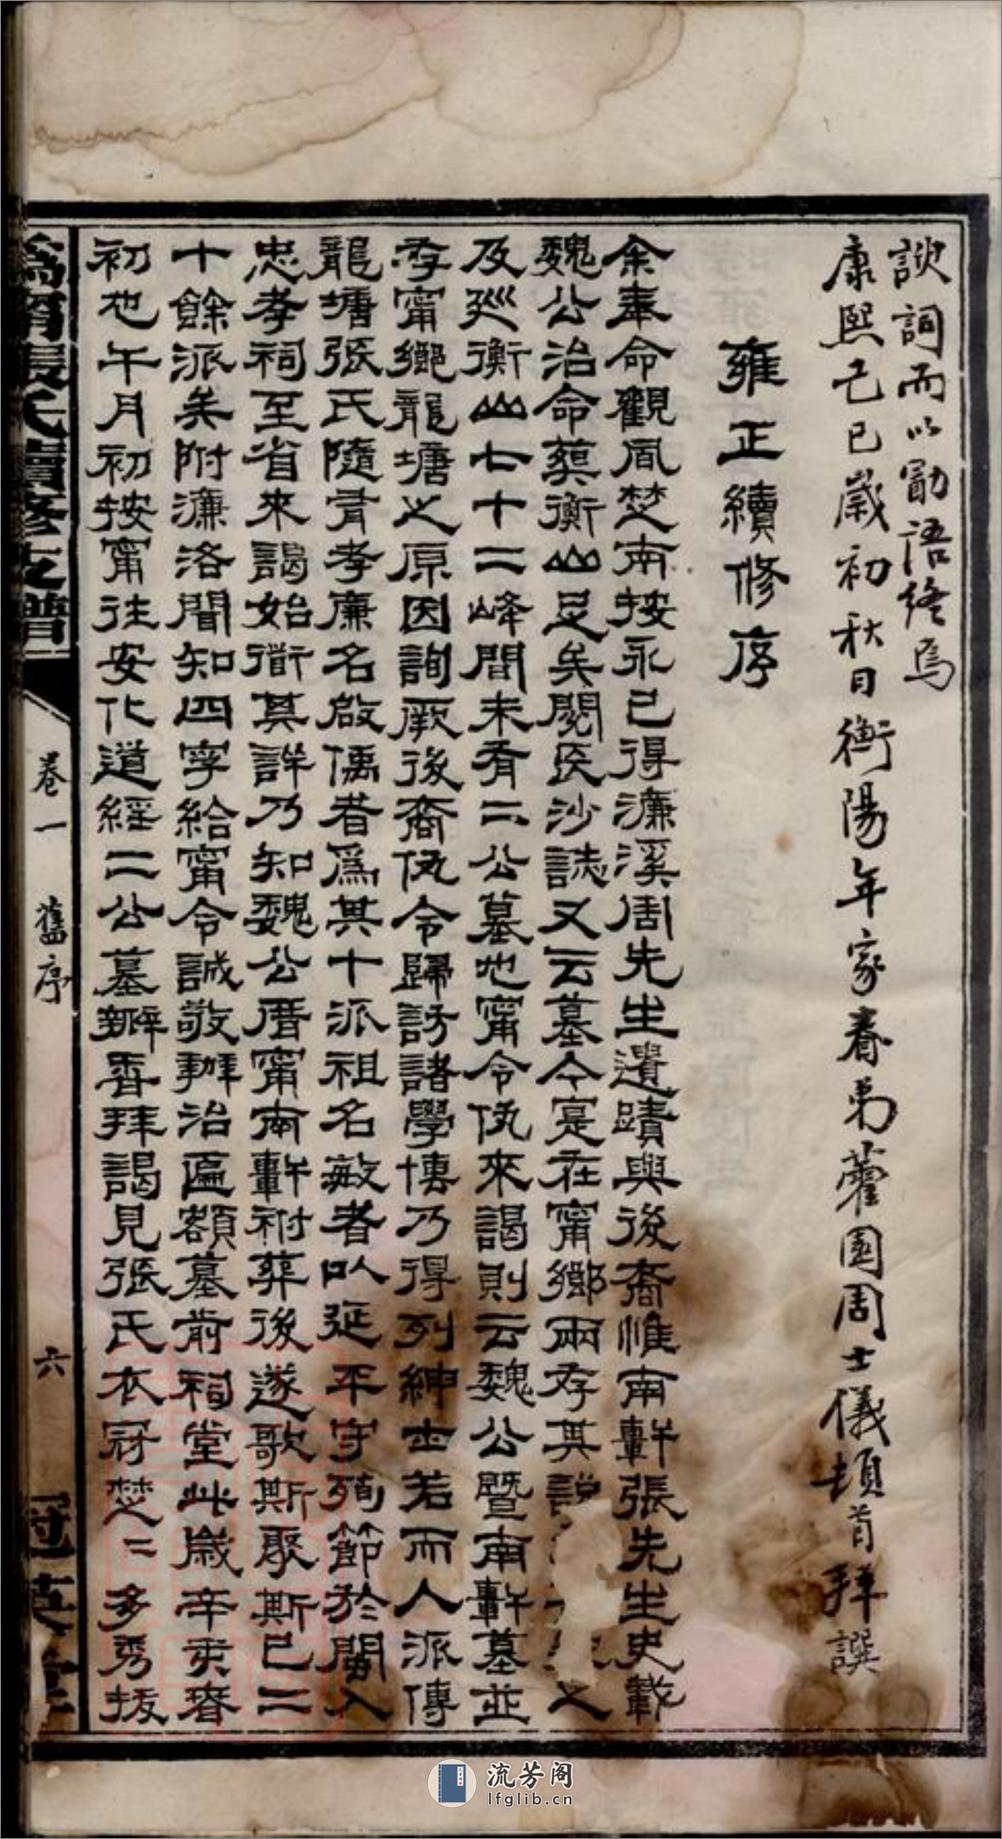 諛詞而以勖語終焉
康熙己巳歲初秋日衡陽年家眷弟藿園周士儀頓首拜譔
雍正續修序
余奉命觀風楚南按永已得濂溪周先生遺蹟與後裔惟南軒張先生史載
魏公治命葬衡山足矣閱長沙誌又云墓今寔在甯鄉兩存其說
及巡衡山七十二峰間未有二公墓地甯令仇來謁則云魏公暨南軒墓並
存甯鄉龍塘之原因詢厥後裔仇令歸訪諸學博乃得列紳士若而人派傳
龍塘張氏隨有孝廉名啟儒者爲其十派祖名敏者以延平守殉節於閩入
忠孝祠至省來謁始衜其詳乃知魏公厝甯南軒祔葬後遂歌斯聚斯已二
十餘派矣附濂洛聞知四字給甯令誠敬辦治匾額墓前祠堂此歲辛亥春
初也午月初按甯往安化道經二公墓瓣香拜謁見張氏衣冠楚二多秀拔
爲甯張氏續修支譜
卷一
舊序
六
冠英堂
流芳阁
lfglib.cn